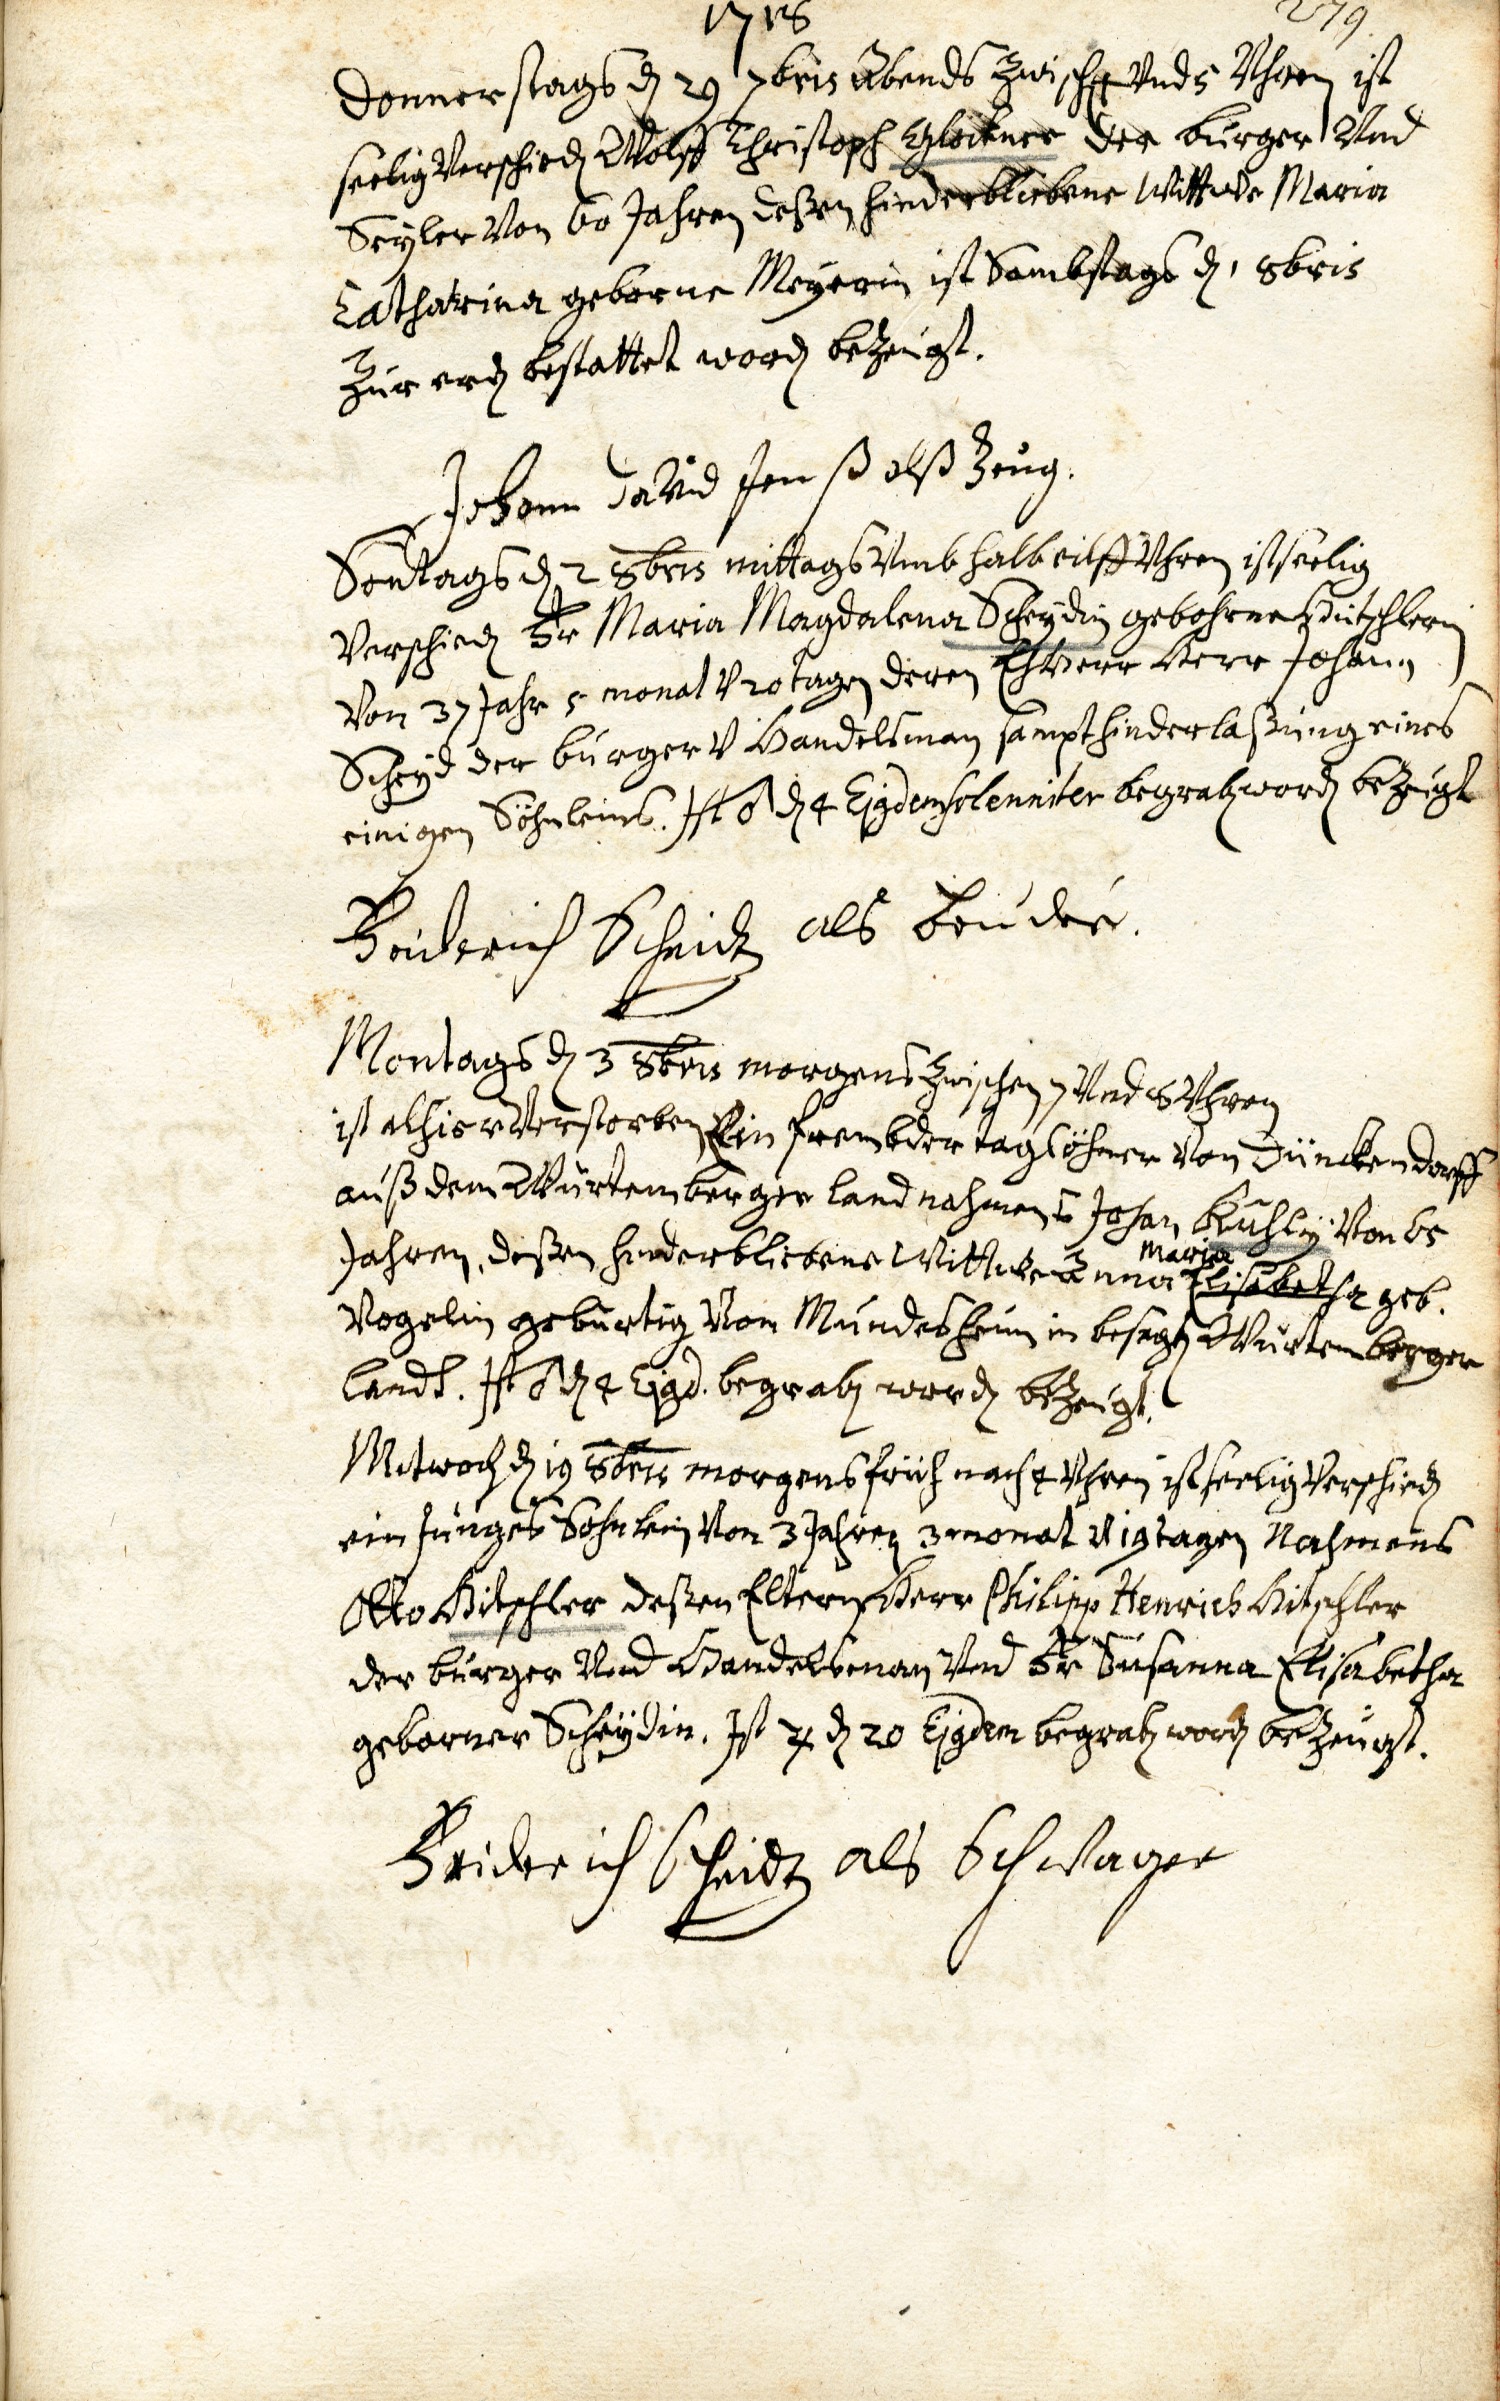 1718 279
Donnerstags d 29 7bris Abends Zwisch 4 Vnd 5 Vhren ist
seelig Verschied Wolff Christoph Glockner der burger Vnd
Seyler Von 60 Jahren deßen hinderbliebene Wittwe Maria
Catharina geborne Meyerin ist Sambstags d 1 8bris
Zur erd bestattet word beZeugt.
Johann David alß Zeug.
Sontags d 2 8bris mittags Vmb halb eilff Vhren ist seelig
Verschied Fr Maria Magdalena Scheydin gebohrne Hütschlerin
Von 37 Jahr 5 monat V 20 tagen deren EhHerr Herr Johann
Scheyd der burger V Handelsman sampt hinderlaßung eines
einigen Söhnleins. Ist ♂ d 4 Ejgdem solenniter begrab word beZeugt
Friderich Scheidt als bruder.
Montags d 3 8bris morgens Zwischen 7 Vnd 8 Vhren
ist alhier Verstorben Ein frembder taglöhner Von Dünckendorff
auß dem Würtemberger land nahmens Johan Kuhly Von 65
Jahren, deßen hinderbliebene Wittwe Anna Maria Elisabetha geb.
Vogelin gebürtig Von Mundesheim in besagt Würtemberger
landt. Ist ♂ d 4 Ejgd. begrab word beZeugt.
Mitwoch d 19 8bris morgens früh nach 4 Vhren ist seelig Verschied
ein junges Söhnlein Von 3 Jahren 3 monat V 19 tagen Nahmens
Otto Hitschler deßen Eltern Herr Philipp Henrich Hitschler
der burger Vnd Handelsman Vnd Fr Susanna Elisabetha
geborner Scheydin. Ist ♃ d 20 Ejgdem begrab word beZeugt.
Friderich Scheidt als Schwager